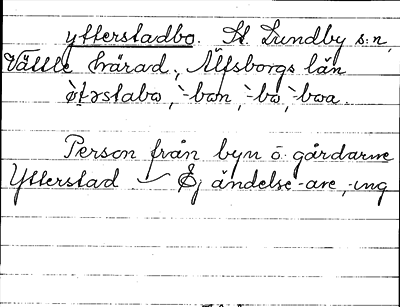 ytterstadbo. St. Lundby s:n,
Vättle härad, Älfsborgs län
øtərstabo, -bon, -bo, -boa.
Person från byn o. gårdarne
Ytterstad — Ej ändelse -are, -ing